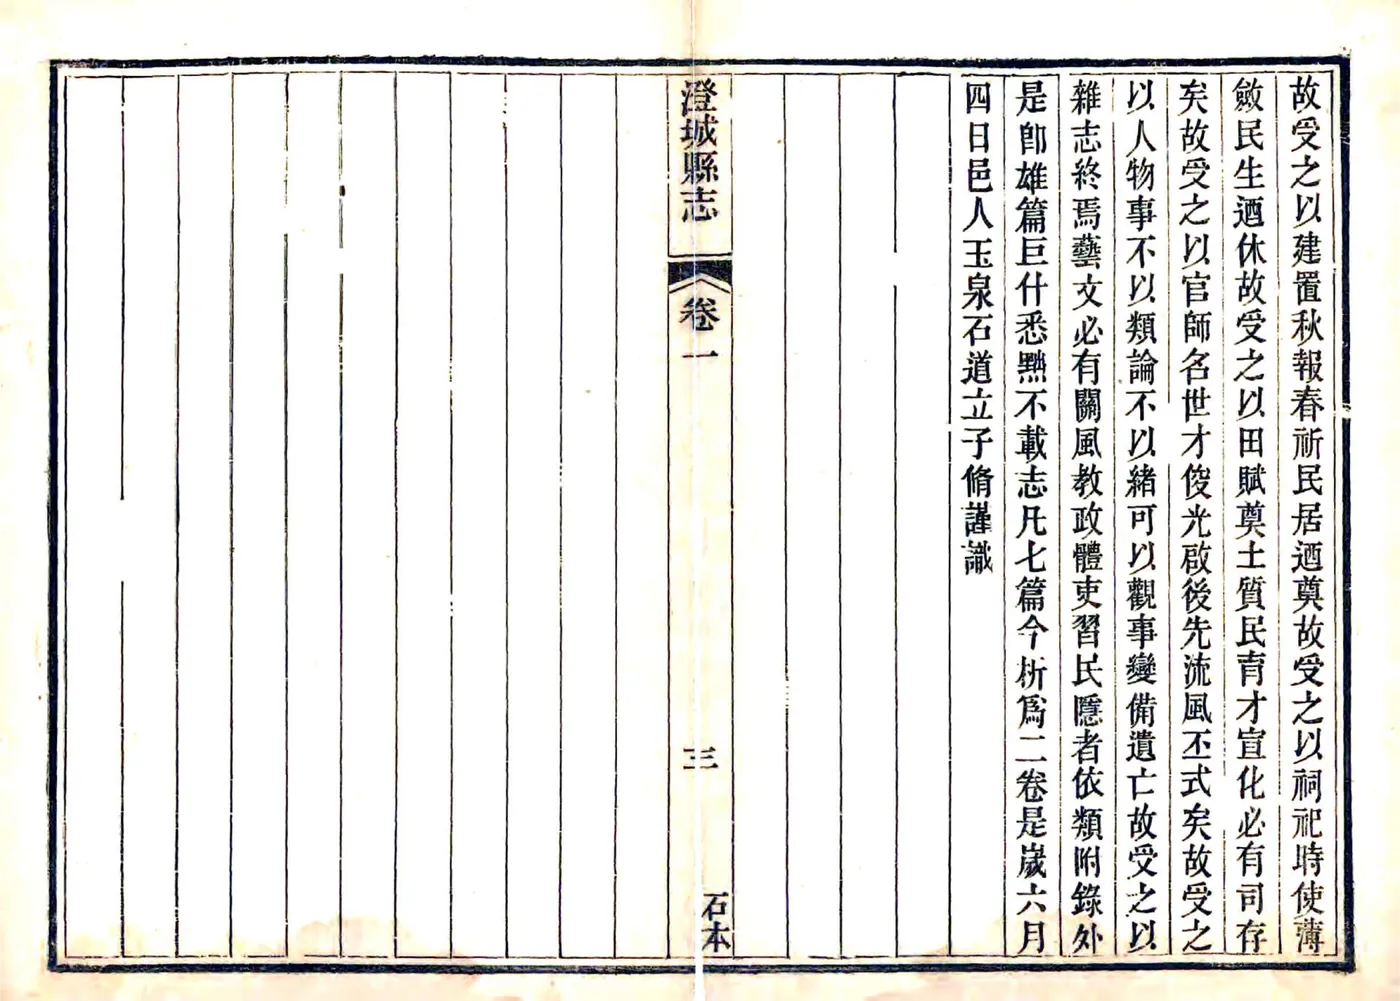 故受之以建置秋報春祈民居迺奠故受之以祠祀時使薄
斂民生迺休故受之以田賦奠土質民育才宣化必有司存
矣故受之以官師名世才俊光啟後先流風丕式矣故受之
以人物事不以類論不以緒可以觀事變備遺亡故受之以
雜志終焉藝文必有關風教政體吏習民隱者依類附錄外
是卽雄篇巨什悉黜不載志凡七篇今析爲二卷是歲六月
四日邑人玉泉石道立子脩謹識
澄城縣志
卷一
三
石本